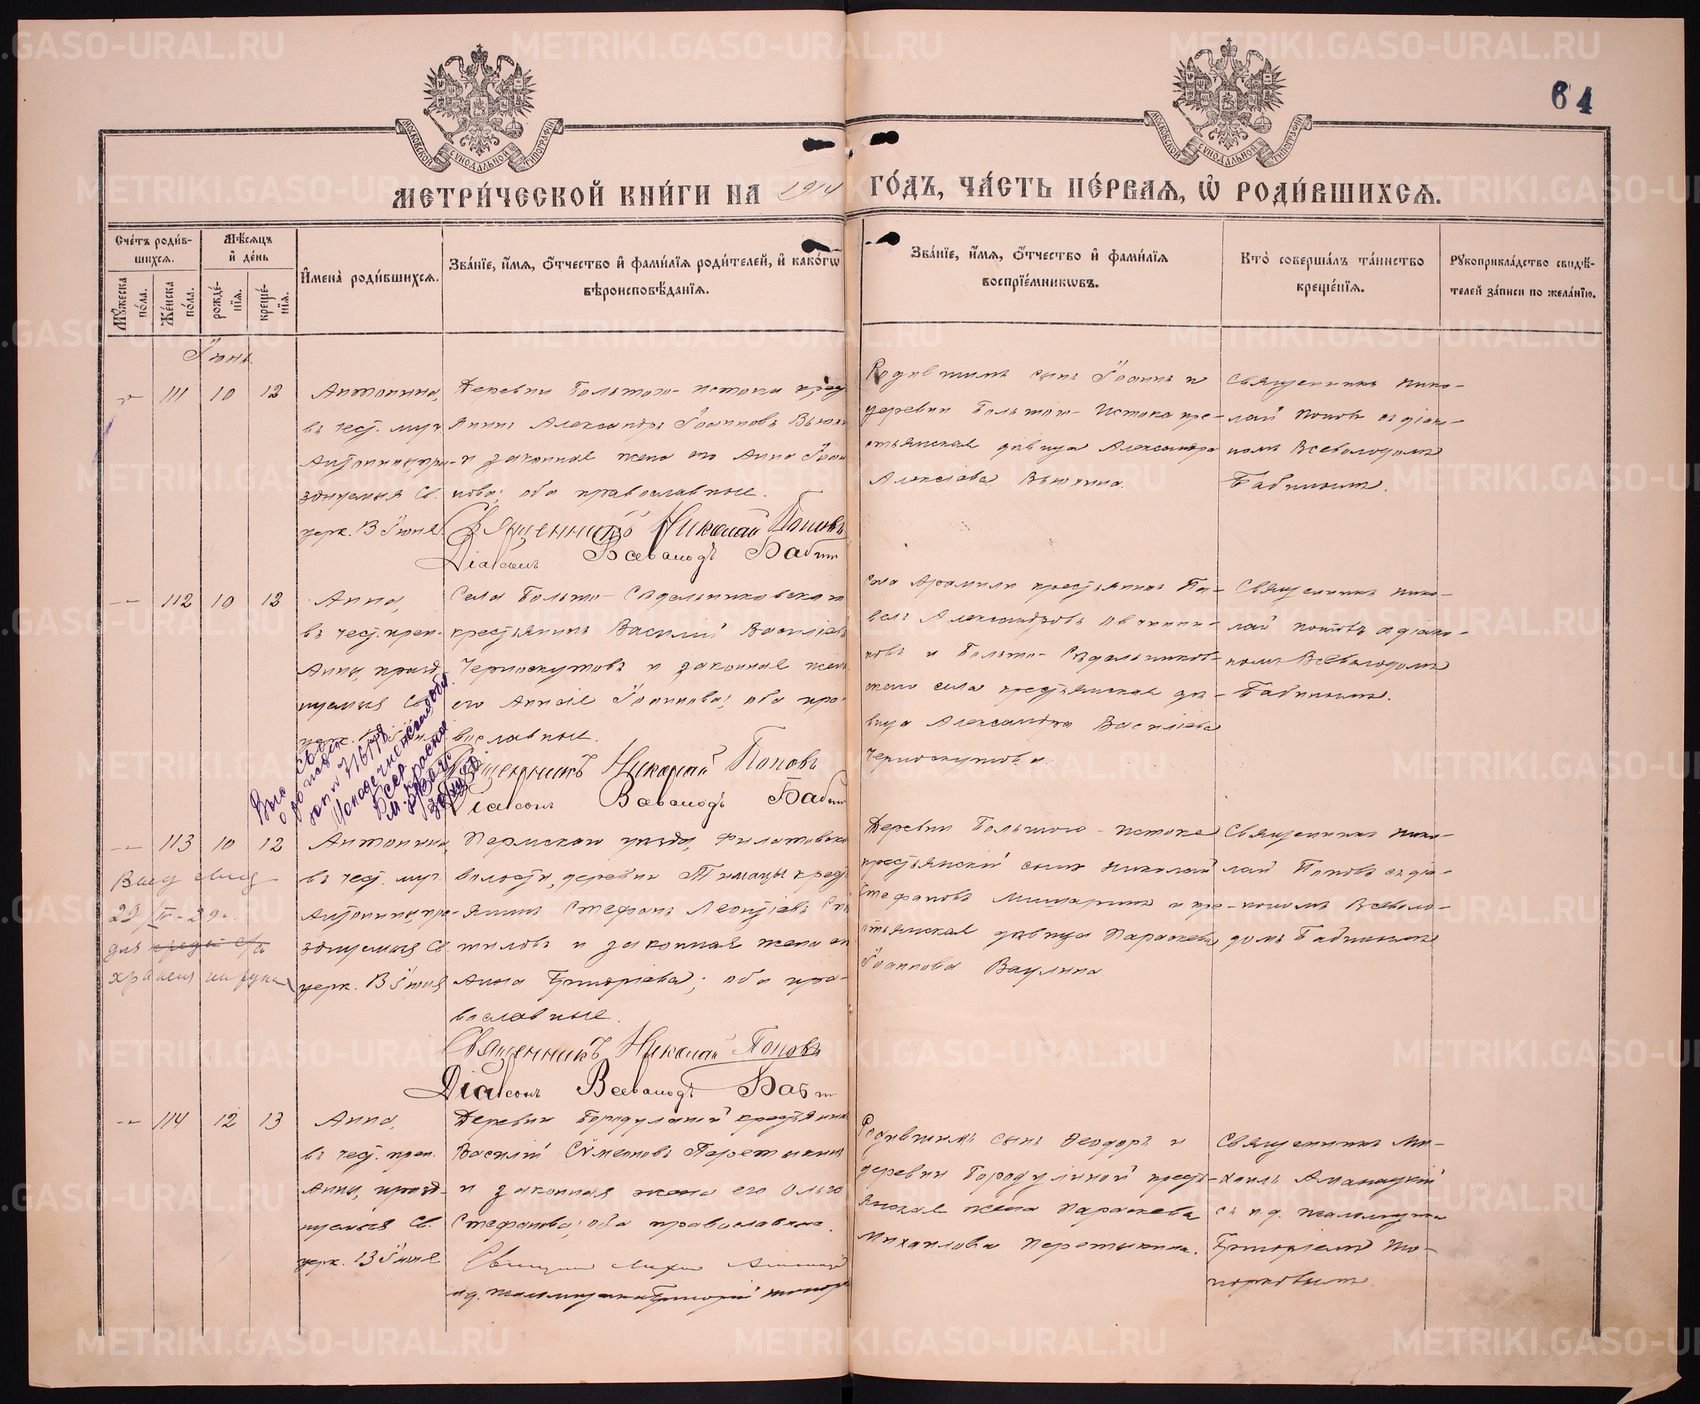 64
МЕТРИ́ЧЕСКОЙ КНИ́ГИ НА 1914 ГО́ДЪ, ЧА́СТЬ ПЕ́РВАЯ, Ѡ РОДИ́ВШИХСЯ.
Счетъ роди́вшихся.
Мужеска пола.
Женска пола.
Мѣсяцъ и день
рожденія.
крещенія.
Имена роди́вшихся.
Званіе, имя, отчество и фамилія родителей, и какогѡ вѣроисповѣданія.
Званіе, имя, отчество и фамилія воспріемниковъ.
Кто совершалъ таинство крещенія.
Рукоприкладство свидѣтелей записи по желанію.
Іюнь
111 10 12
Антонина,
въ чест. муч.
Антонины, пра-
зднуемыя Св.
церк. 13 Іюня.
Деревни Большого-Истока крест
янинъ Александръ Іоанновъ Вьюх
и законная жена его Анна Іоан
нова; оба православные.
Священникъ Николай Поповъ
Діаконъ Всеволодъ Бабин
Родившихъ сынъ Іоаннъ и
деревни Большого-Истока кре-
стьянская дѣвица Александра
Алексіева Вьюхина.
Священникъ Нико-
лай Поповъ съ діако-
номъ Всеволодомъ
Бабинымъ.
112 10 12
Анна,
въ чест. преп.
Анны, празд-
нуемыя Св.
церк.
Села Больше-Седельниковскаго
крестьянинъ Василій Василіевъ
Черноскутовъ и законная жена
его Анна Іоаннова; оба пра-
вославные.
Священникъ Николай Поповъ
Діаконъ Всеволодъ Бабин
Села Арамили крестьянинъ Па-
велъ Александровъ Овчинни-
ковъ и Больше-Седельников-
скаго села крестьянская дѣ-
вица Александра Василіева
Черноскутова.
Священникъ Нико-
лай Поповъ съ діако-
номъ Всеволодомъ
Бабинымъ.
113 10 12
Антонина,
въ чест. муч.
Антонины, пра-
зднуемыя Св
церк. 13 Іюня
Выд свид
29/IV-29г.
для
хранен на руки
Пермскаго уѣзда,
волости, деревни крест
янинъ Стефанъ Леонтіевъ
и законная жена его
Анна Григоріева; оба пра-
вославные.
Священникъ Николай Поповъ
Діаконъ Всеволодъ Бабин
Деревни Большого-Истока
крестьянскій сынъ Николай
Стефановъ Мишаринъ и кре-
стьянская дѣвица Параскева
Іоаннова Ваулина
Священникъ Нико-
лай Поповъ съ діа-
кономъ Всеволо-
домъ Бабинымъ
114 12 13
Анна,
въ чест. преп.
Анны, празд-
нуемыя Св.
церк. 13 Іюня
Деревни Бородулиной крестьянинъ
Василій Симеоновъ Перетыкинъ
и законная жена его Ольга
Стефанова; оба православные.
и.д. псаломщика Григорій
Родившихъ сынъ Ѳеодоръ и
деревни Бородулиной кресть-
янская жена Параскева
Михаилова Перетыкина.
Священникъ Ми-
хаилъ
съ и.д. псаломщика
Григоріемъ То-
порковымъ.
METRIKI.GASO-URAL.RU